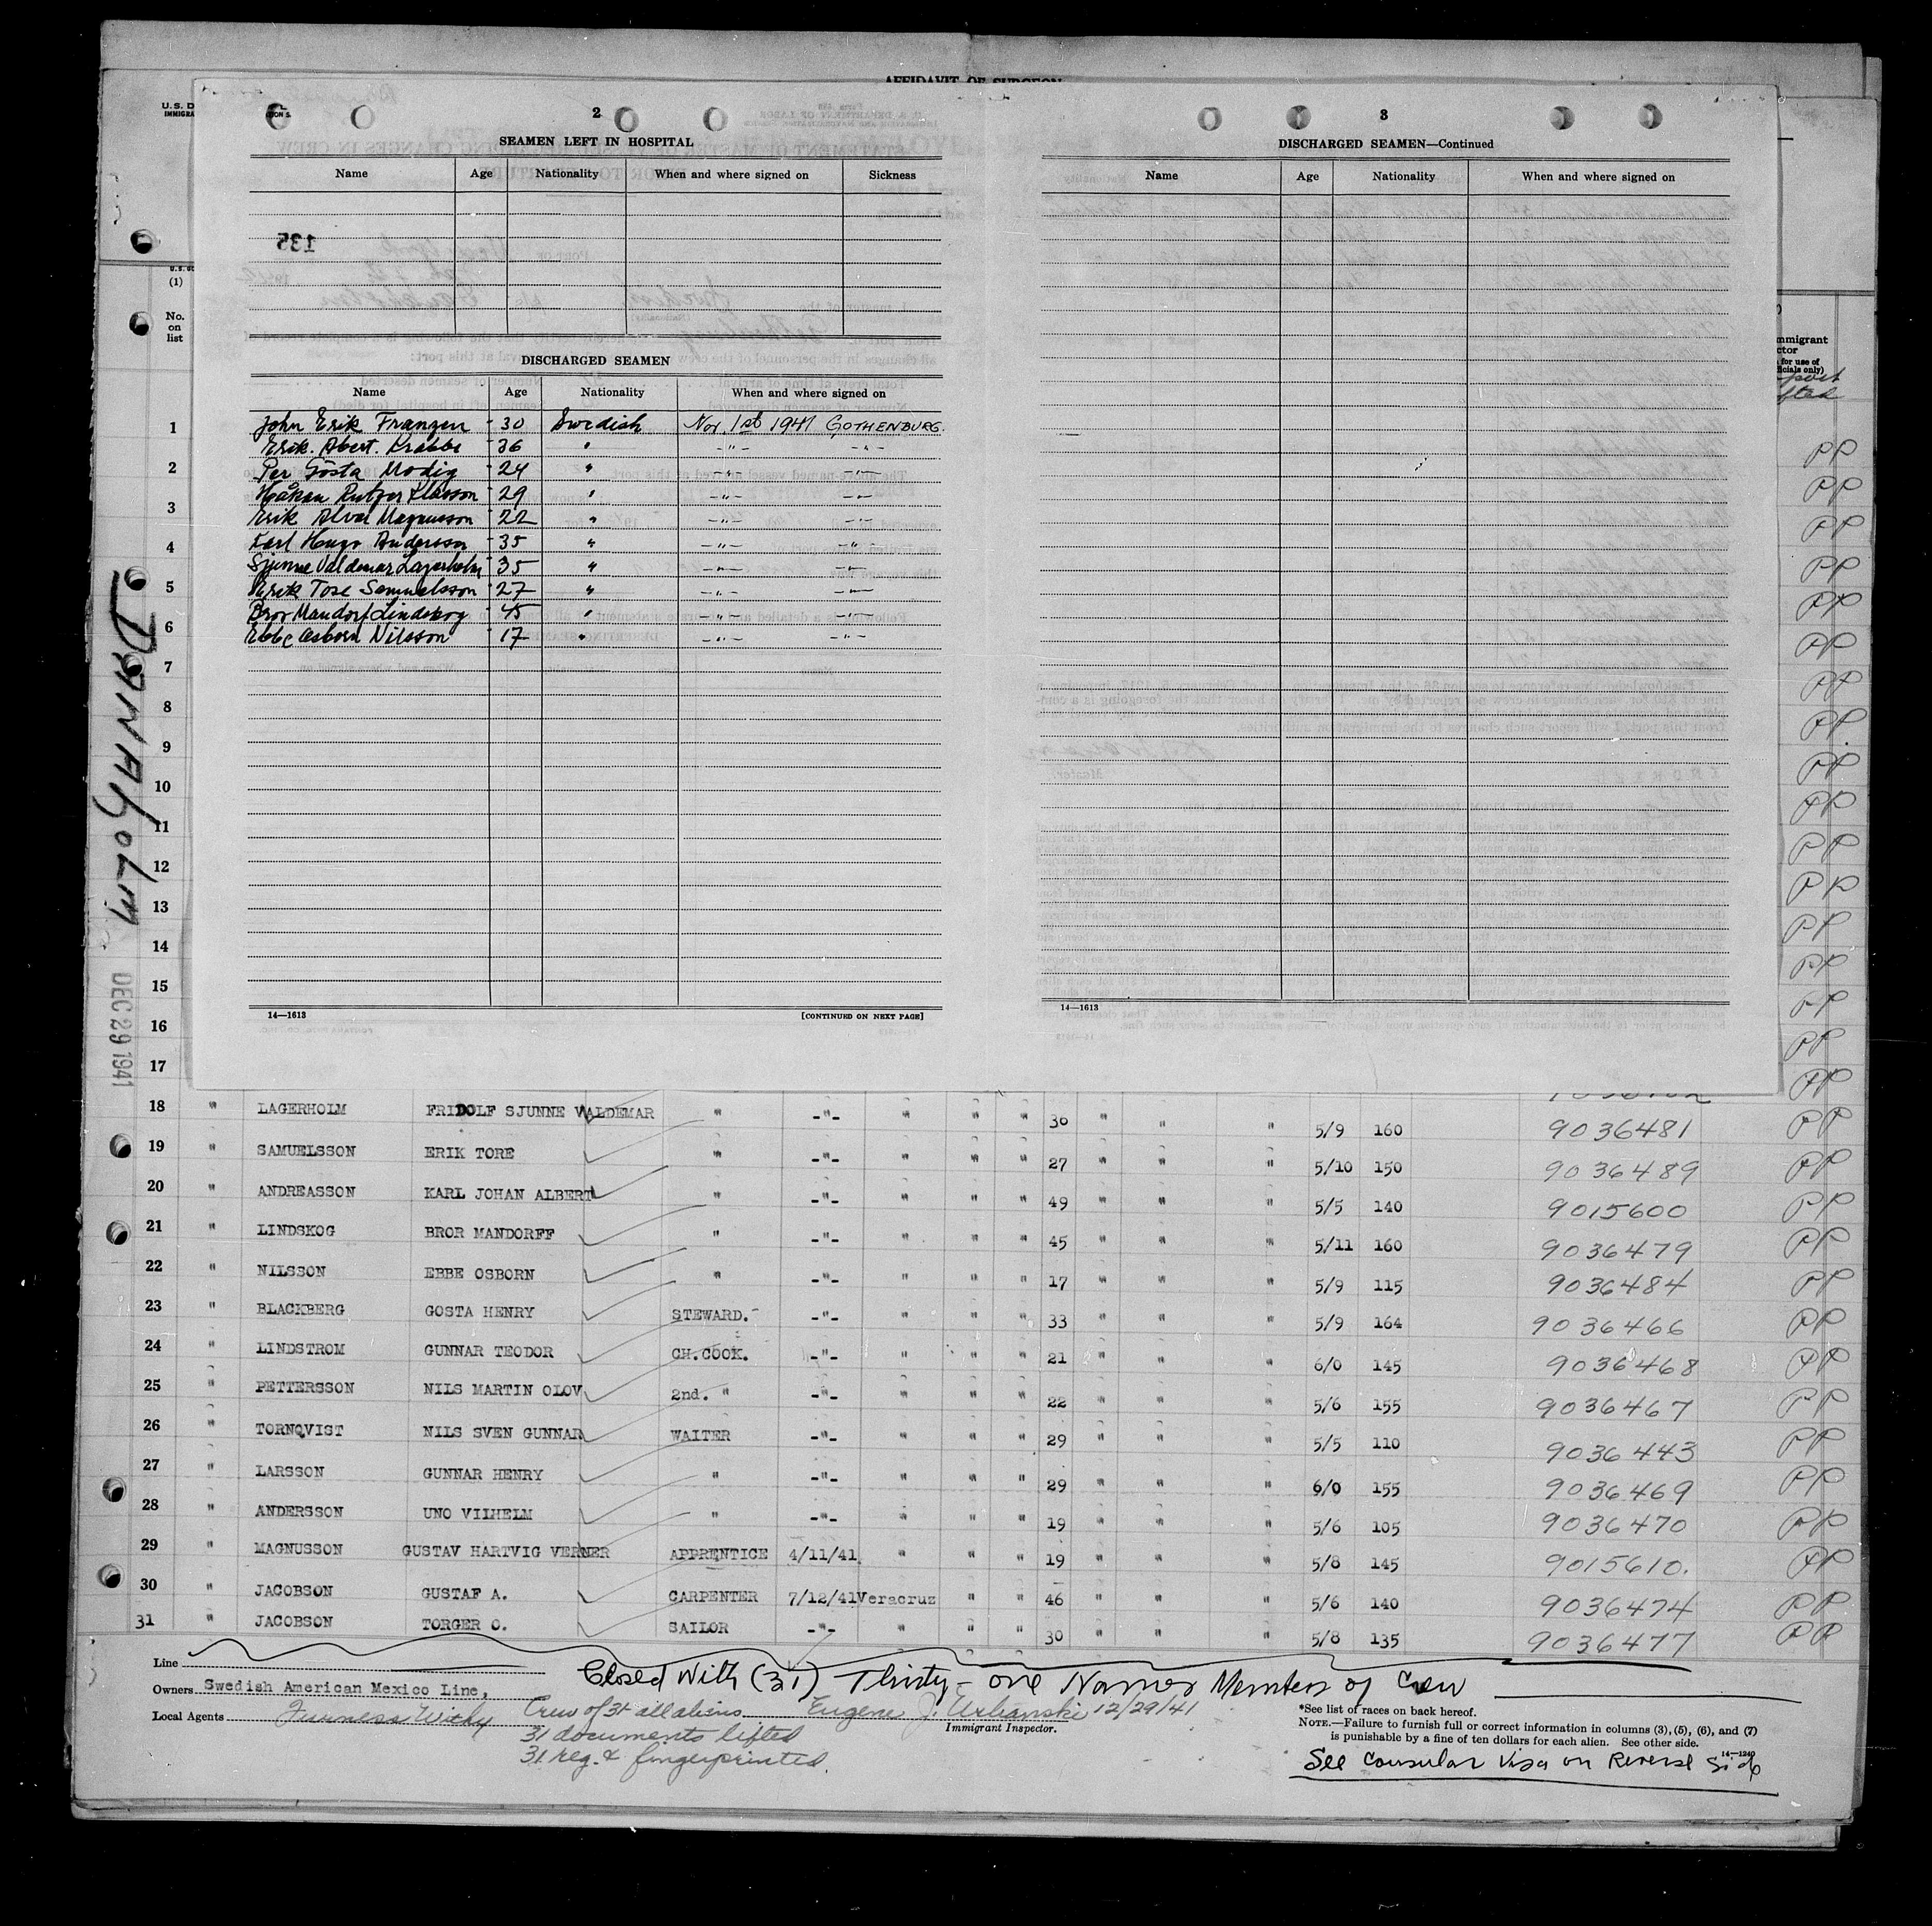 AFFIDAVIT OF SURGEON
U.S. D
IMMIGRA
2
SEAMEN LEFT IN HOSPITAL
Name Age Nationality When and where signed on Sickness
135
DISCHARGED SEAMEN
Name Age Nationality When and where signed on
John Erik Franzen - 30 Swedish Nov. 1st 1941 GOTHENBURG.
Erik. Abert. Krabbe - 36 " -"- -"-
Per Gösta Modig - 24 " -"- -"-
Håkan Rutger Klasson - 29 " -"- -"-
Erik Alvar Magnusson - 22 " -"- -"-
Karl Hugo Andersson - 35 " -"- -"-
Sjunne Valdemar Lagerholm - 35 " -"- -"-
Erik Tore Samuelsson - 27 " -"- -"-
Bror Mandorf Lindskog - 45 " -"- -"-
Ebbe Osborn Nilsson - 17 " -"- -"-
14—1613 [CONTINUED ON NEXT PAGE]
3
DISCHARGED SEAMEN—Continued
Name Age Nationality When and where signed on
14—1613
(1)
No.
on
list
mmigrant
ctor
for use of
ficials only)
1
2 PP
3 PP
4 PP
5 PP
6 PP
7 PP
8 PP
9 PP
10 PP
11 PP
12 PP
13 PP
14 PP
15 PP
16 PP
17 PP
DANAHOLM
DEC 29 1941
18 " LAGERHOLM FRIDOLF SJUNNE VALDEMAR " -"- " " " 36 " " " 5/9 160 9036481 PP
19 " SAMUELSSON ERIK TORE " -"- " " " 27 " " " 5/10 150 9036489 PP
20 " ANDREASSON KARL JOHAN ALBERT " -"- " " " 49 " " " 5/5 140 9015600 PP
21 " LINDSKOG BROR MANDORFF " -"- " " " 45 " " " 5/11 160 9036479 PP
22 " NILSSON EBBE OSBORN " -"- " " " 17 " " " 5/9 115 9036484 PP
23 " BLACKBERG GOSTA HENRY STEWARD. -"- " " " 33 " " " 5/9 164 9036466 PP
24 " LINDSTROM GUNNAR TEODOR CH.COOK. -"- " " " 21 " " " 6/0 145 9036468 PP
25 " PETTERSSON NILS MARTIN OLOV 2nd. " -"- " " " 22 " " " 5/6 155 9036467 PP
26 " TORNQVIST NILS SVEN GUNNAR WAITER -"- " " " 29 " " " 5/5 110 9036443 PP
27 " LARSSON GUNNAR HENRY " -"- " " " 29 " " " 6/0 155 9036469 PP
28 " ANDERSSON UNO VILHELM " -"- " " " 19 " " " 5/6 105 9036470 PP
29 " MAGNUSSON GUSTAV HARTVIG VERNER APPRENTICE 4/11/41 " " " 19 " " " 5/8 145 9015610. PP
30 " JACOBSON GUSTAF A. CARPENTER 7/12/41 Veracruz " " 46 " " " 5/6 140 9036474 PP
31 " JACOBSON TORGER O. SAILOR -"- " " " 30 " " " 5/8 135 9036477 PP
Line
Closed With (31) Thirty-one Names Members of Crew
Owners Swedish American Mexico Line,
Local Agents Furness Withy
Crew of 31 all aliens Eugene J. 12/29/41
Immigrant Inspector.
31 documents lifted
31 reg. & fingerprinted.
*See list of races on back hereof.
NOTE.—Failure to furnish full or correct information in columns (3), (5), (6), and (7)
is punishable by a fine of ten dollars for each alien. See other side.
14—1240
See Consular Visa on Reverse Side